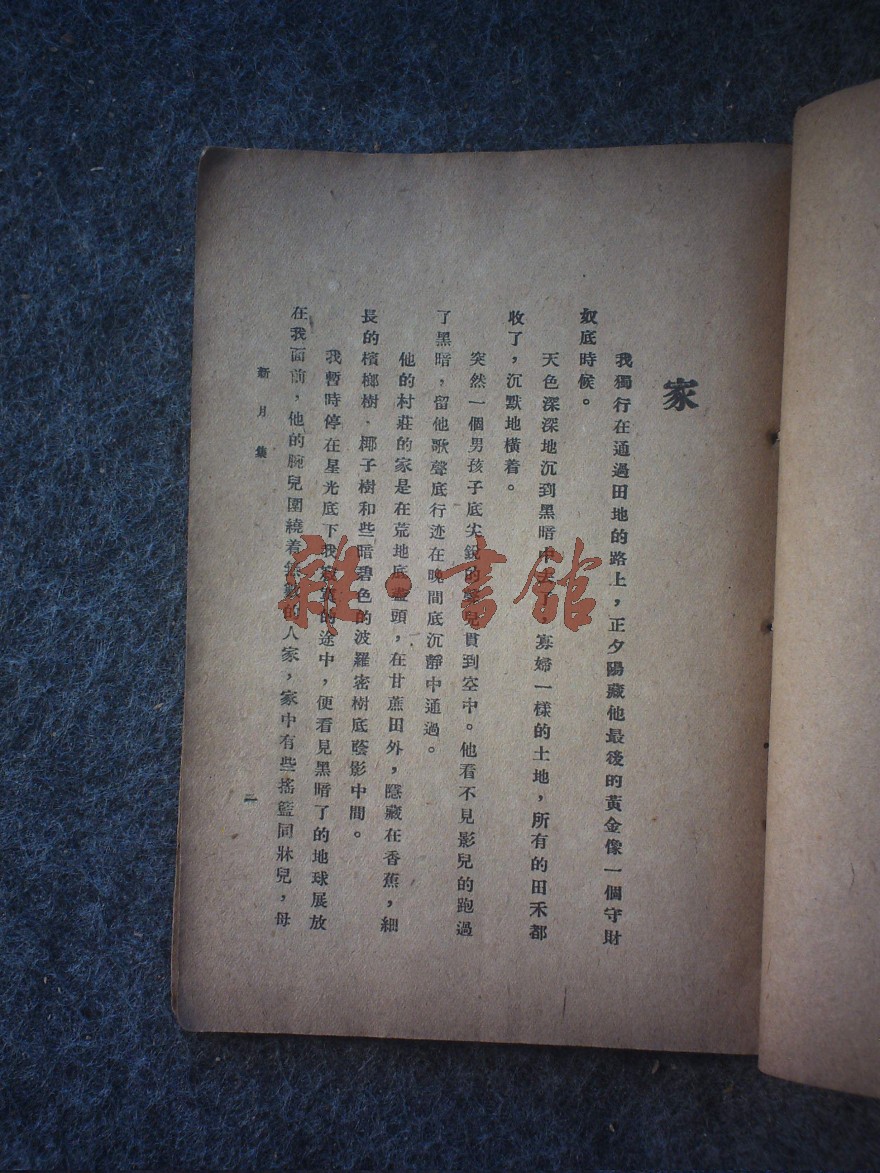 家
我獨行在通過田地的路上，正夕陽藏他最後的黃金像一個守財
奴底時候。
天色深深地沉到黑暗中去了，寡婦一樣的土地，所有的田禾都
收了，沉默地橫着。
突然一個男孩子底尖銳的聲兒貫到空中。他看不見影兒的跑過
了黑暗，留他歌聲底行迹在晚間底沉靜中通過。
他的村莊的家是在荒地底盡頭，在甘蔗田外，隱藏在香蕉，細
長的檳榔樹，椰子樹和些暗碧色的波羅密樹底蔭影中間。
我暫時停在星光底下我寂寞的途中，便看見黑暗了的地球展放
在我面前，他的腕兒圍繞着無數的人家，家中有些搖籃同牀兒，母
新月集
二
雜·書館